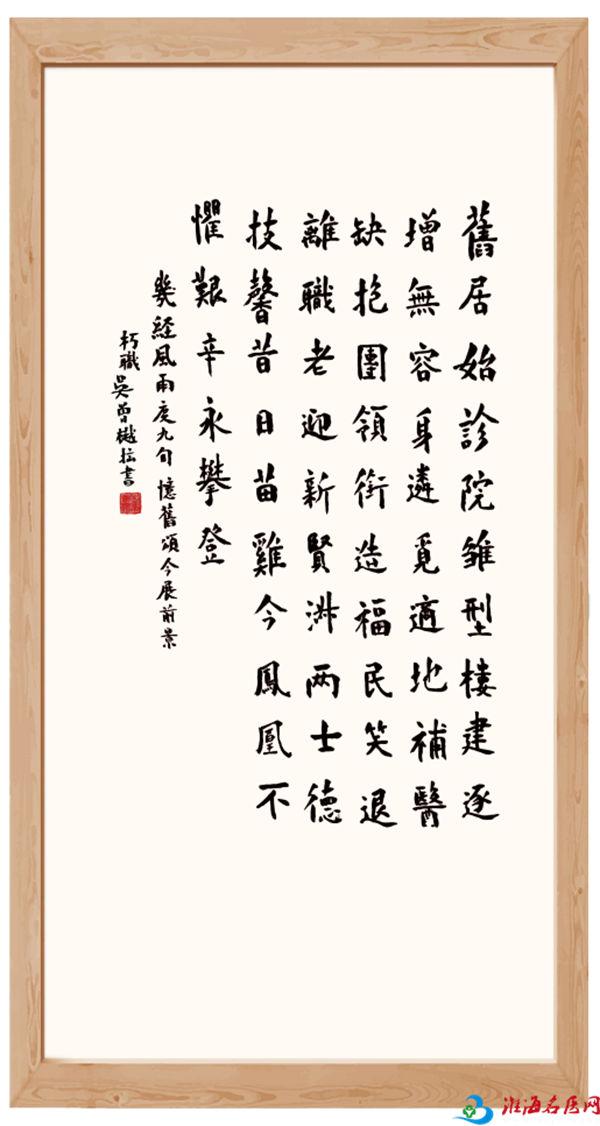 舊居始診院雛型樓建逐
增無容身遴覓適地補醫
缺抱團領銜造福民笑退
離職老迎新賢濟两士德
技馨昔日苗雞今鳳凰不
懼艱辛永攀登
幾經風雨度九旬憶舊頌今展前景
朽職吳曾樾拉書
淮海名医网